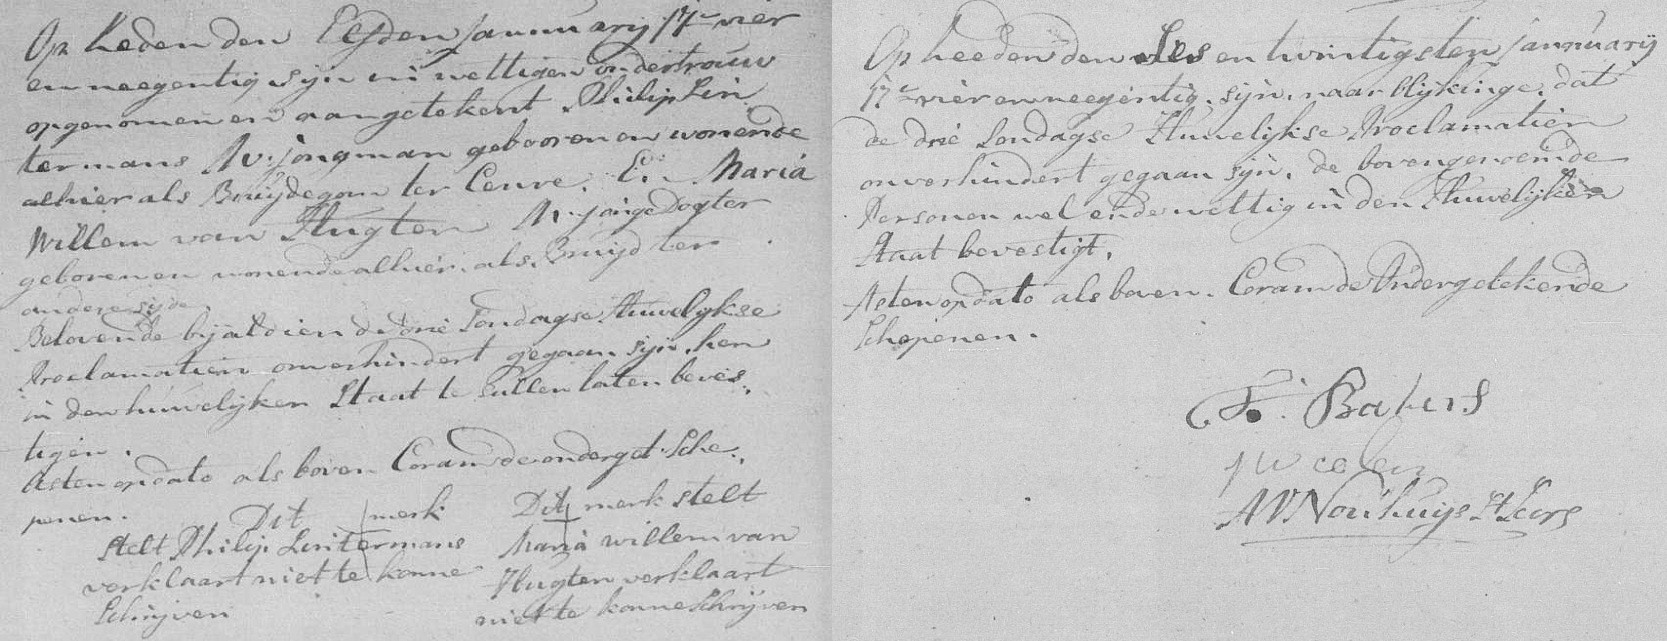 Op heden den Elfden Januuarij 17c vier
en neegentig sijn in wettigen ondertrouw
opgenomen en aangetekent Philip Lin
termans N: v: jongman gebooren en wonende
alhier als Bruijdegom ter Eenre, En Maria
Willem van Hugten N: jonge Dogter
geboren en wonende alhier, als Bruijd ter
andere sijde
Belovende bij aldien de drie Sondagse Huwelijkse
Proclamatien onverhindert gegaan sijn, hen
in den huwelijken Staat te sullen laten beves„
tigen.
Asten op dato als boven Coram de onderget: Sche„
penen.
Dit merk
stelt Philip Lintermans
verklaart niet te konne
Schrijven
Dit merk stelt
Maria willem van
Hugten verklaart
niet te konne Schrijven
Op heeden den Ses en twintigsten januuarij
17c vier en neegentig, sijn, naar blijkinge, dat
de drie Sondagse Huwelijkse Proclamatien
onverhindert gegaan sijn, de bovengenoemde
Personen wel ende wettig in den Huwelijken
Staat bevestigt,
Asten op dato als boven. Coram de Ondergetekende
Schepenen.
A V Nouhuijs